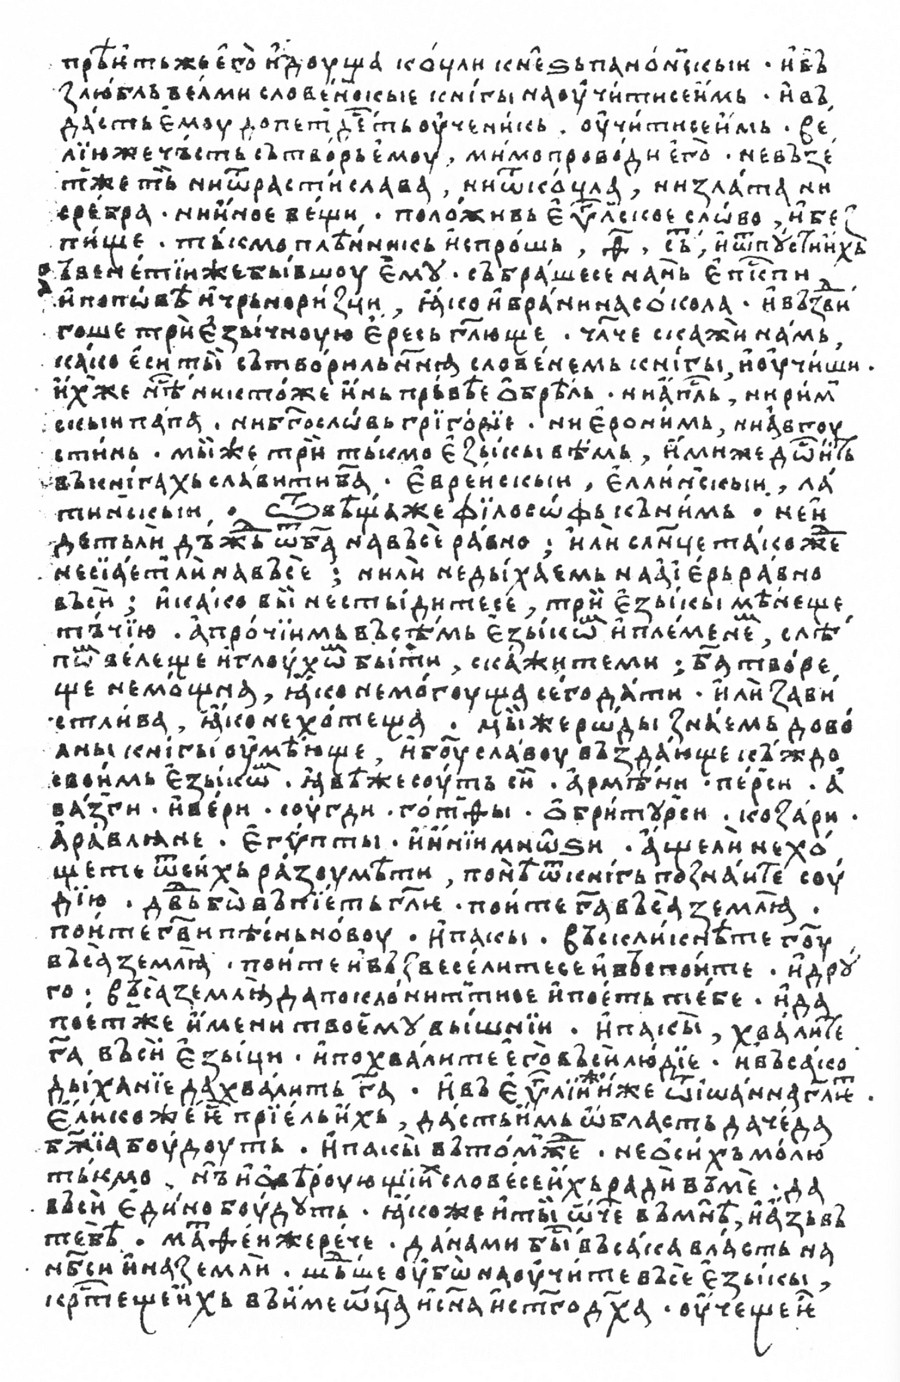 прѣѥтьже єго̀ идоуща коцли кнезьпанонскыи · ивъ
злюбль веами словенскые книгы наоучитисеимь · ивъ
дасть ємоу допетдесеть оученикь . оучитисеимь · ве
лїюжечьсть сьтворьємоу , мимопроводи єго · невьзе
тже ть ниѿрастислава , ниѿкоцла , низлата ни
сребра · ниинное вещи . положивь єѵⷢльское слово , ибез
пище · тькмо плѣнникь испрошь , ѳ҃ , съ҃ , иѿпустиихь
ьвенетїижебывшоу ємꙋ · събрашесе нань єпⷭкпи
ипопове ичрьноризци , ꙗко ивранинасокола · ивьздви
гоше триєзычноую єресь глюще · члче скажи намь,
како єси ты сьтворильннꙗ словѣнемь книгы , иоучиши .
ихже нѣ никтоже инь прьвѣе ѻбрѣль · ниапⷭль , нирим
скыи папа . нибгословь григорїе · ни єронимь , ниавгоу
стинь · мыже три тькмо єзыкы вѣмь , имиже дⷭоить
вькнигахь славитиба · єврейскыи , єллинскыи , ла
тинскыи · Ѿвѣщаже фїлософь кьнимь · не и
детьли дъжⷣь ѿба навьсе равно ; или слнце такожⷣе
несїаетⷧли навьсе ; нили недыхаемь нааїерьравно
вьси ; икако вы нестыдитесе , три єзыкы мѣнеще
тьчїю . апрочїимьвьсѣмь єзыкѡⷨ иплемене , слѣ
пѡⷨ велеще иглоухѡⷨ быти , скажитеми ; ба творе
ще немощна , ꙗко немогоуща сегодати · или зави
стлива , ꙗко нехотеща . мыжероды знаемь дово
аны книгы оумѣюще , ибоу славоу вьздающе кьждо
своимь єзыкѡⷨ . ꙗвѣжесоуть си . армѣни · перси . а
вазги · ивери · соугди · готѳы · обри турси · козари .
аравлꙗне . єгѵпты · ииниимнѡѕи . ащелинехо
щетеѿсихь разоумѣти , понѣѿкнигь познаите соу
дїю . двдьбовьпїетьгле · поитегавьсазємлꙗ .
поитегвипѣсньновоу . ипакы . вьскликнѣте гоу
вьсаземлꙗ · поите ивьзвеселитесеивьспоите . идру
го ; вьсаземлꙗдапоклонитⷭтисе ипоеть тебе . ида
поетⷤе имени твоемꙋ вышнїи . ипакы , хвалите
га вьси єзыци . ипохвалите єговьсилюдїе . ивьсако
дыханїедахвалить га . ивь єѵⷢлїи же ѿїѡаннаглⷮе .
єликоже ихь прїель ихь , дастьимь областьдачеда
бжїа боудоуть . ипакы вьтомⷤже · не о сихьмолю
тькмо , нь и о вѣроующїи словесеихьради вьме · да
вьси єдино боудꙋть · ꙗкоже иты ѿче вьмнѣ , иазьвь
тебѣ . маѳеижерече . данами бы вьсакавласть на
нбси иназемли . шьⷣше оубонаоучите вьсе єзыкы ,
крⷭтещеихь вьимеѿца иснаистⷢодха . оучещеи